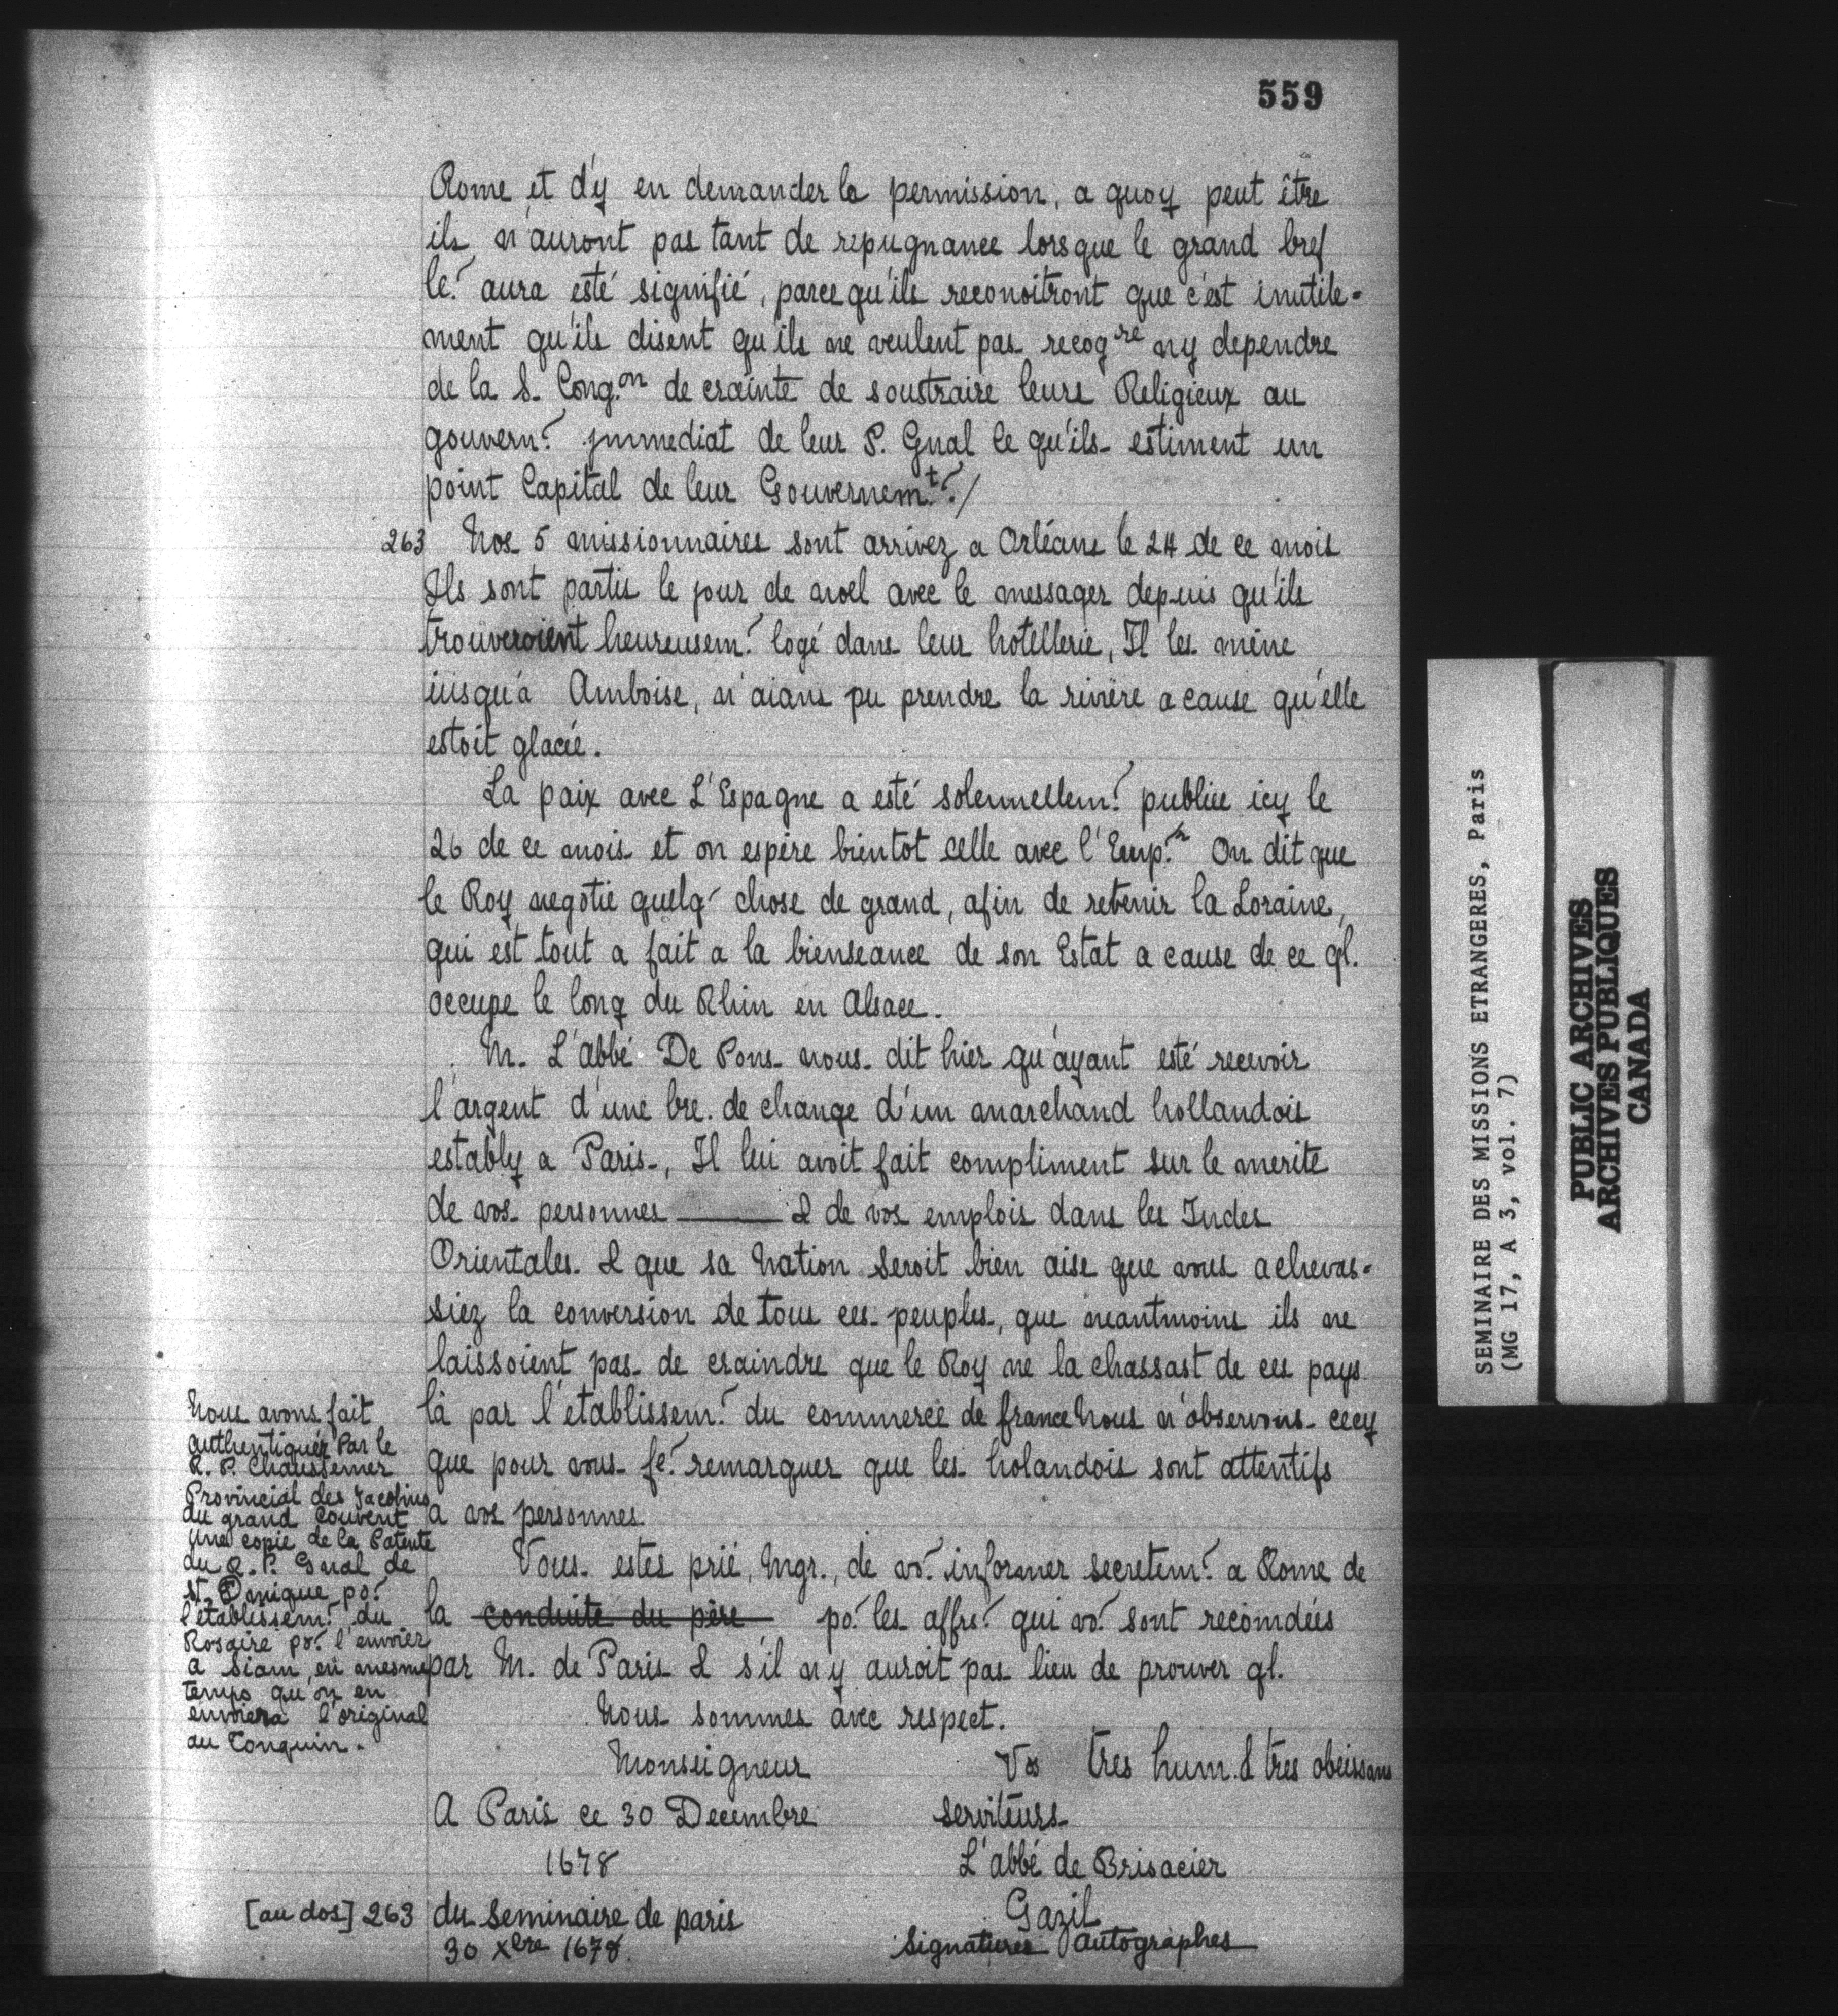 559
Rome et d'y en demander la permission, a quoy peut être
ils n'auront pas tant de repugnance lorsque le grand bref
le. aura esté signifié, parce qu'ils reconoitront que c'est inutile-
ment qu'ils disent qu'ils ne veulent pas recogre ny dependre
de la S. Cong.on de crainte de soustraire leurs Religieux au
gouvern.t jmmediat de leur P. Gnal ce qu'ils estiment un
point Capital de leur Gouvernem.t/
263 Nos 5 missionnaires sont arrivez a Orléans le 24 de ce mois
Ils sont partis le jour de noel avec le messager depuis qu'ils
trouveroient heureusem.t logé dans leur hotellerie, Il les mène
iusqu'à Amboise, n'aians pu prendre la rivière a cause qu'elle
estoit glacée.
La paix avec L'Espagne a esté solennellem.t publiée icy le
26 de ce mois et on espère bientot celle avec l'Emp.r On dit que
le Roy negotie quelq' chose de grand, afin de retenir la Loraine,
qui est tout a fait a la bienseance de son Estat a cause de ce ql.
occupe le long du Rhin en Alsace.
M. L'abbé De Pons nous dit hier qu'ayant esté recevoir
l'argent d'une bre. de change d'un marchand hollandois
estably a Paris, Il lui avoit fait compliment sur le merite
de vos personnes ——— & de vos emplois dans les Indes
Orientales. & que sa Nation seroit bien aise que vous achevas-
siez la conversion de tous ces peuples, que neantmoins ils ne
laissoient pas de craindre que le Roy ne la chassast de ces pays
là par l'établissem.t du commerce de france Nous n'observons cecy
que pour vous fe. remarquer que les holandois sont attentifs
a vos personnes.
Nous avons fait
authentiquer Par le
R. P. Chaussemer
Provincial des Jacobins
du grand Couvent
une copie de la Patente
du R. P. Gnal de
St. Dnique po.
l'établissem.t du
Rosaire po. l'envoier
a Siam, en mesme
temps qu'on en
envoiera l'original
au Tonquin.
Vous estes prié, Mgr., de vo. informer secretem.t a Rome de
la conduite du père po. les affre. qui vo. sont recomdées
par M. de Paris & s'il n'y auroit pas lieu de prouver ql.
Nous sommes avec respect.
Monseigneur
Vos très hum. & très obéissans
A Paris ce 30 Decembre
serviteurs
1678
L'abbé de Brisacier
[au dos] 263 du Seminaire de paris
Gazil
30 Xbre 1678.
Signatures autographes
SEMINAIRE DES MISSIONS ETRANGERES, Paris
(MG 17, A 3, vol. 7)
PUBLIC ARCHIVES
ARCHIVES PUBLIQUES
CANADA